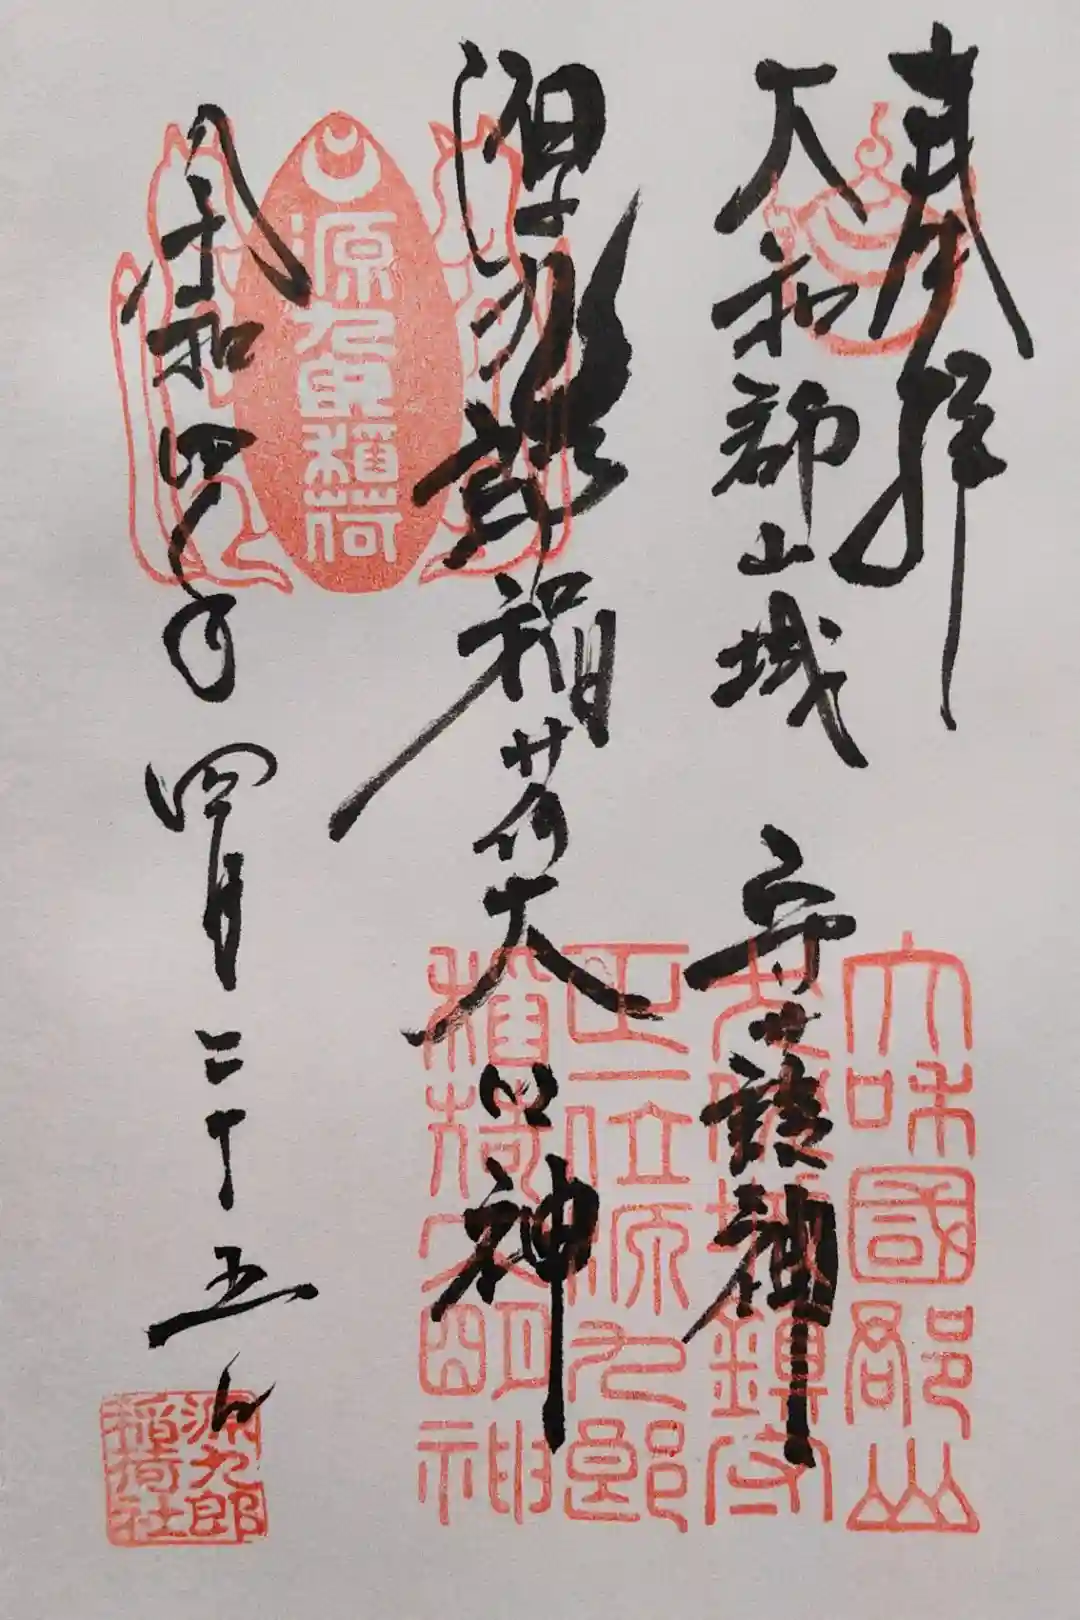 奉拝
大和郡山城 守護神
源九郎稲荷大明神
令和四年 四月二十五日
源九郎稲荷
大和國郡山
鎮守
正一位源九郎
稲荷大明神
源九郎
稲荷社